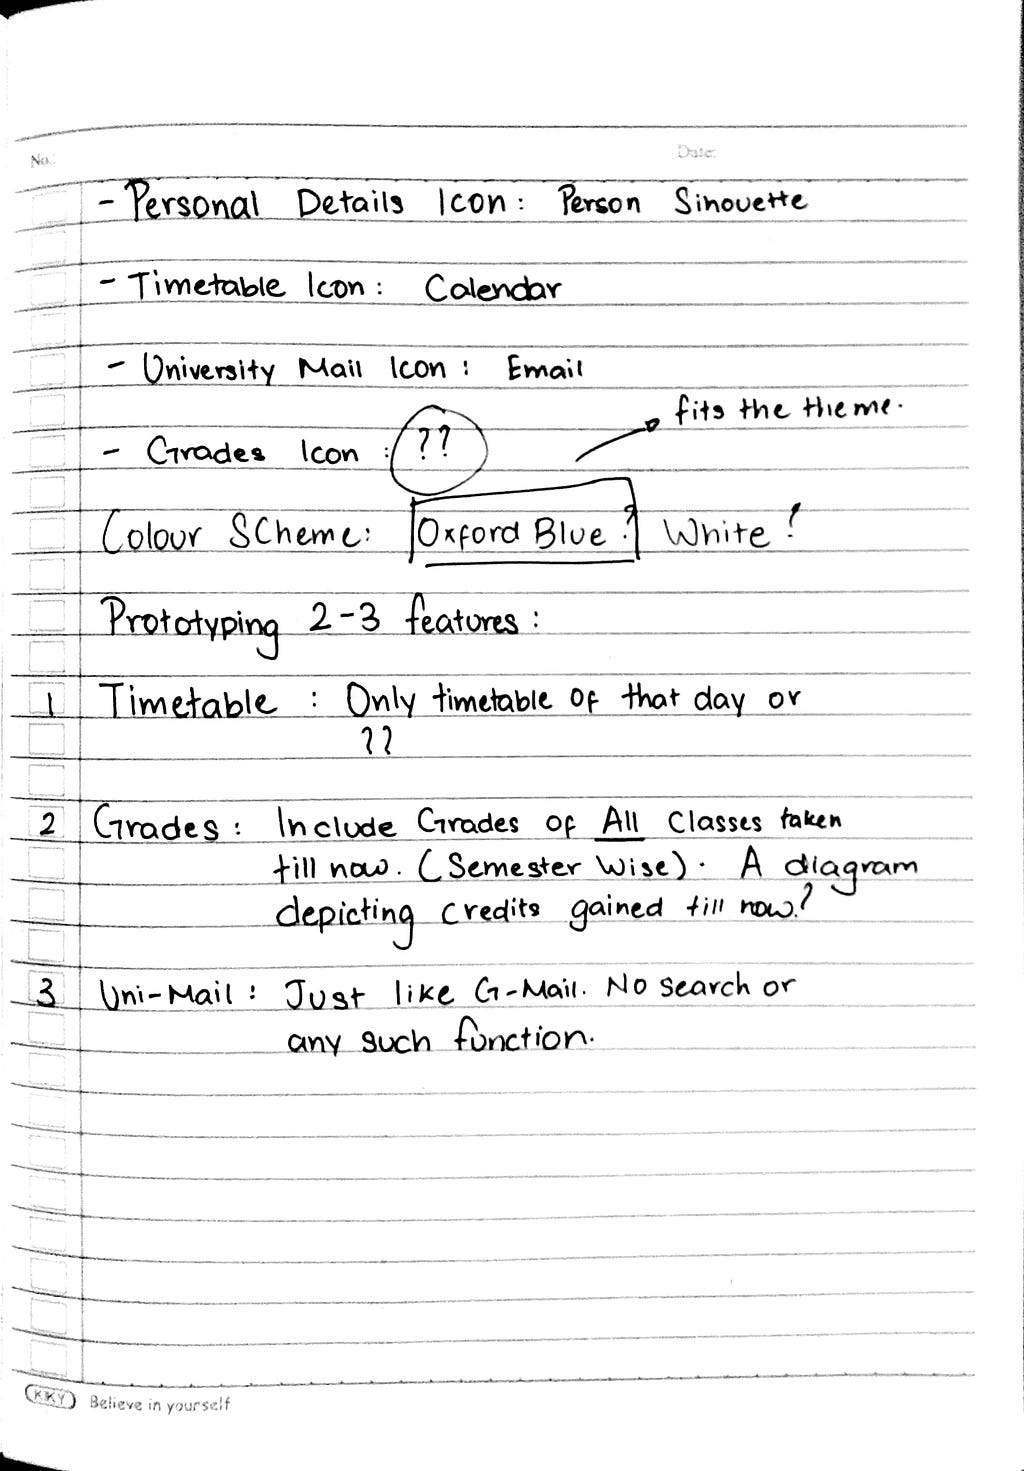 No.
Date:
- Personal Details Icon: Person Sihouette
- Timetable Icon: Calendar
- University Mail Icon: Email
fits the theme.
- Grades Icon: ??
Colour Scheme: Oxford Blue? White?
Prototyping 2-3 features:
1 Timetable: Only timetable of that day or
??
2 Grades: Include Grades of All Classes taken
till now. (Semester Wise). A diagram
depicting credits gained till now?
3 Uni-Mail: Just like G-Mail. No search or
any such function.
KKY Believe in yourself